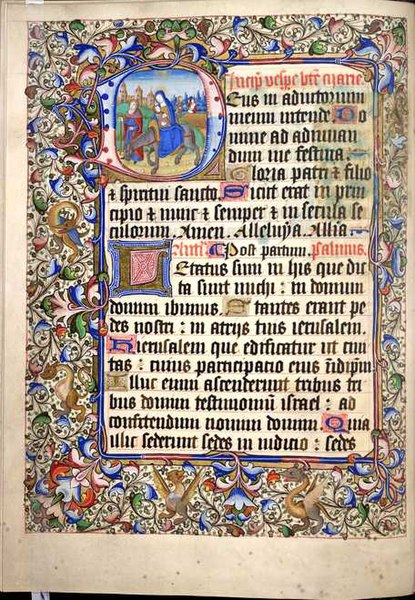 Incip̄ vesp̄e btē marie.
Eus in adiutorium
meum intende. Do
mine ad adiuuan
dum me festina.
Gloria patri & filio
& spiritui sancto. Sicut erat in prin
cipio & nunc & semper & in secula se
culorum. Amen. Alleluya. Allīa.
Post partum. psalmus.
Letatus sum in his que dic
ta sunt michi: in domum
domini ibimus. Stantes erant pe
des nostri: in atrys tuis ierusalem.
Hierusalem que edificatur ut ciui
tas: cuius participatio eius
Illuc enim ascenderunt tribus tri
bus domini testimonium israel: ad
confitendum nomini domini. Quia
illic sederunt sedes in iudicio: sedes